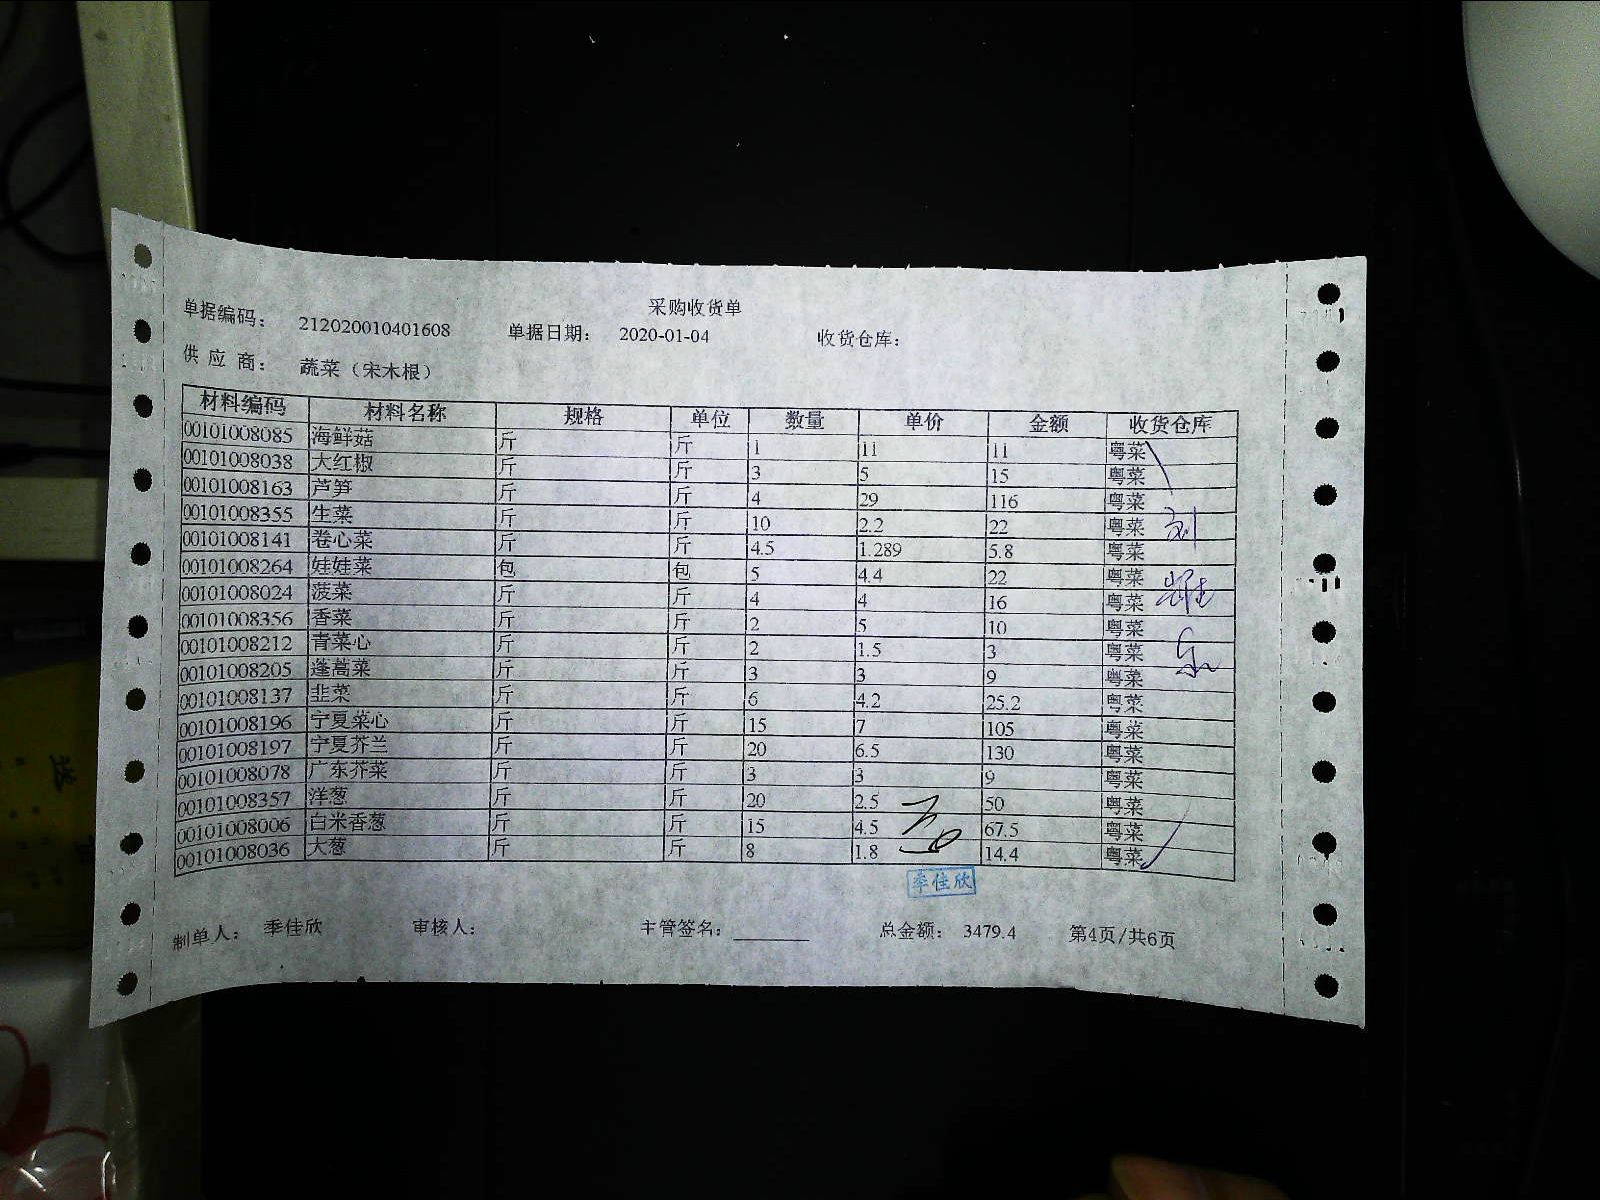 采购收货单
单据编码： 212020010401608 单据日期： 2020-01-04 收货仓库：
供 应 商： 蔬菜（宋木根）
材料编码 材料名称 规格 单位 数量 单价 金额 收货仓库
00101008085 海鲜菇 斤 斤 1 11 11 粤菜
00101008038 大红椒 斤 斤 3 5 15 粤菜
00101008163 芦笋 斤 斤 4 29 116 粤菜
00101008355 生菜 斤 斤 10 2.2 22 粤菜
00101008141 卷心菜 斤 斤 4.5 1.289 5.8 粤菜
00101008264 娃娃菜 包 包 5 4.4 22 粤菜
00101008024 菠菜 斤 斤 4 4 16 粤菜
00101008356 香菜 斤 斤 2 5 10 粤菜
00101008212 青菜心 斤 斤 2 1.5 3 粤菜
00101008205 蓬蒿菜 斤 斤 3 3 9 粤菜
00101008137 韭菜 斤 斤 6 4.2 25.2 粤菜
00101008196 宁夏菜心 斤 斤 15 7 105 粤菜
00101008197 宁夏芥兰 斤 斤 20 6.5 130 粤菜
00101008078 广东芥菜 斤 斤 3 3 9 粤菜
00101008357 洋葱 斤 斤 20 2.5 50 粤菜
00101008006 白米香葱 斤 斤 15 4.5 67.5 粤菜
00101008036 大葱 斤 斤 8 1.8 14.4 粤菜
季佳欣
制单人： 季佳欣 审核人： 主管签名： 总金额： 3479.4 第4页/共6页